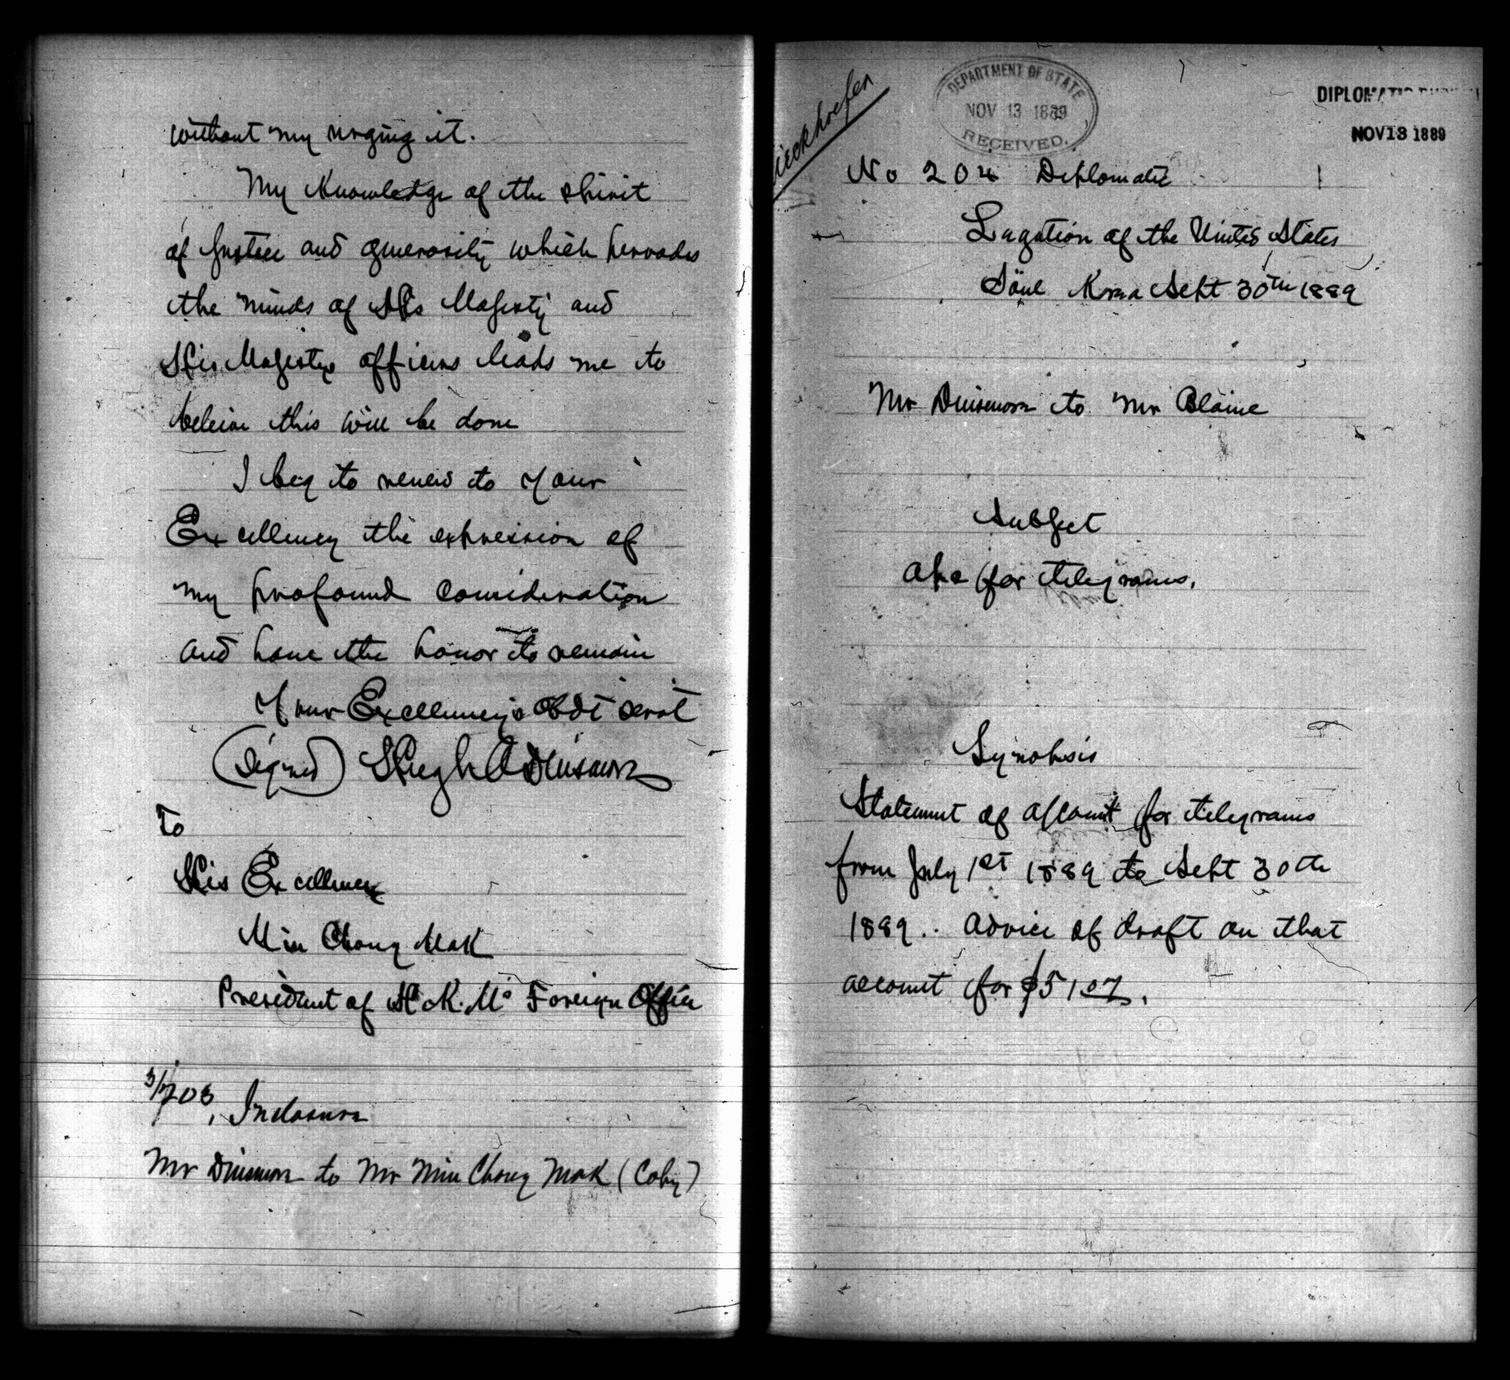 without my urging it.
My Knowledge of the spirit
of justice and generosity which pervades
the minds of His Majesty and
His Majestys officers leads me to
beleive this will be done
I beg to renew to Your
Excellency the expression of
my profound consideration
and have the honor to remain
Your Excellency's obdt servt
(Signed) Hugh A Dinsmore
To
His Excellency
Min Chong Mok
President of H. K. M's Foreign Office
3/703, Inclosure
Mr Dinsmore to Mr Min Chong Mok (Copy)
DEPARTMENT OF STATE
NOV 13 1889
RECEIVED.
DIPLOMATIC BUREAU
NOV 13 1889
No 204 Diplomatic
Legation of the United States
Söul Korea Sept 30th 1889
Mr Dinsmore to Mr Blaine
Subject
a/c for telegrams.
Synopsis
Statement of account for telegrams
from July 1st 1889 to Sept 30th
1889. Advice of draft on that
account for $5107.